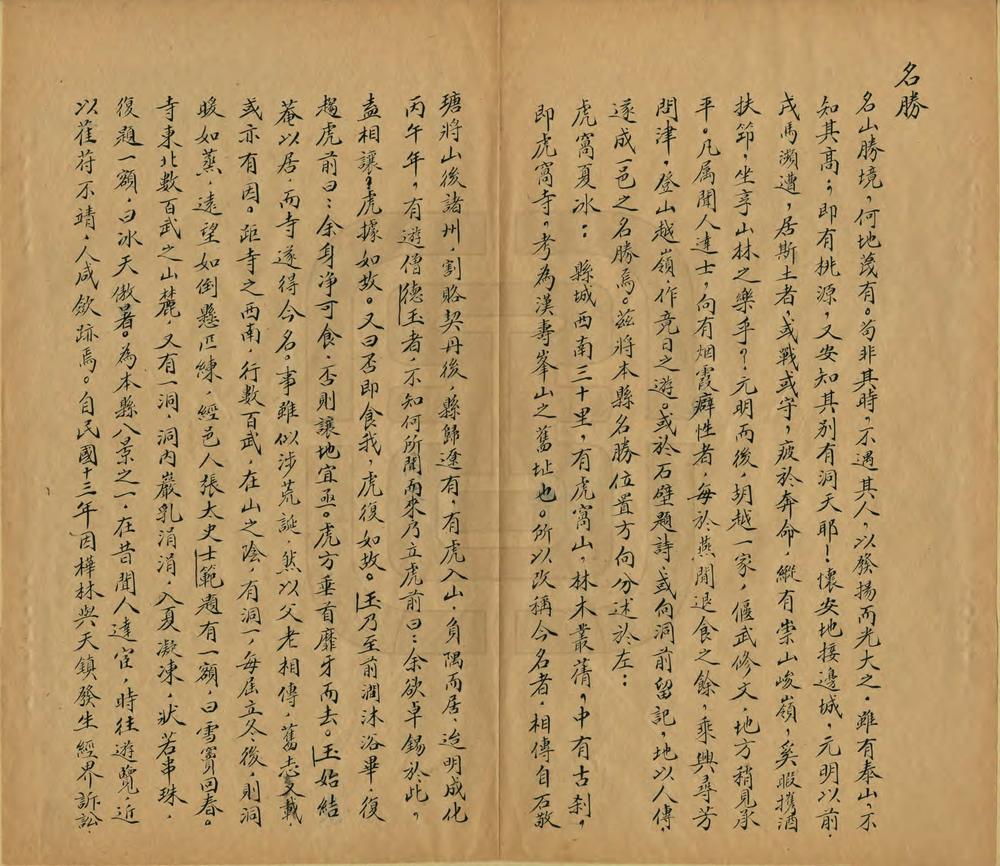 名勝
名山勝境，何地蔑有。苟非其時，不遇其人，以發揚而光大之，雖有泰山，不
知其高；即有桃源，又安知其別有洞天耶！懷安地接邊城，元明以前，
戎馬瀕遭，居斯土者，或戰或守，疲於奔命，縱有崇山峻嶺，奚暇携酒
扶筇，坐享山林之樂乎？元明而後，胡越一家，偃武修文，地方稍見承
平。凡属聞人達士，向有烟霞癖性者，每於燕閒退食之餘，乘興尋芳
問津，登山越嶺，作竟日之遊。或於石壁題詩，或向洞前留記，地以人傳，
遂成一邑之名勝焉。茲將本縣名勝位置方向分述於左：
虎窩夏冰：　縣城西南三十里，有虎窩山，林木叢蒨，中有古刹，
即虎窩寺，考為漢壽峯山之舊址也。所以改稱今名者，相傳自石敬
瑭將山後諸州，割賂契丹後，縣歸遼有，有虎入山，負隅而居，迨明成化
丙午年，有遊僧德玉者，不知何所聞而來，乃立虎前曰：余欲卓錫於此，
盍相讓，虎據如故。又曰否即食我，虎復如故。玉乃至前澗沐浴畢，復
趨虎前曰：余身净可食，否則讓地宜亟。虎方垂首靡牙而去。玉始結
菴以居，而寺遂得今名。事雖似涉荒誕，然以父老相傳，舊志又載，
或亦有因。距寺之西南，行數百武，在山之陰，有洞一，每屆立冬後，則洞
暖如蒸，遠望如倒懸匹練，經邑人張太史士範題有一額，曰雪竇回春。
寺東北數百武之山麓，又有一洞，洞内巖乳涓涓，入夏凝凍，狀若串珠，
復題一額，曰冰天傲暑。為本縣八景之一，在昔聞人達宦，時往遊覽，近
以萑苻不靖，人咸歛跡焉。自民國十三年，因樺林與天鎮發生經界訴訟